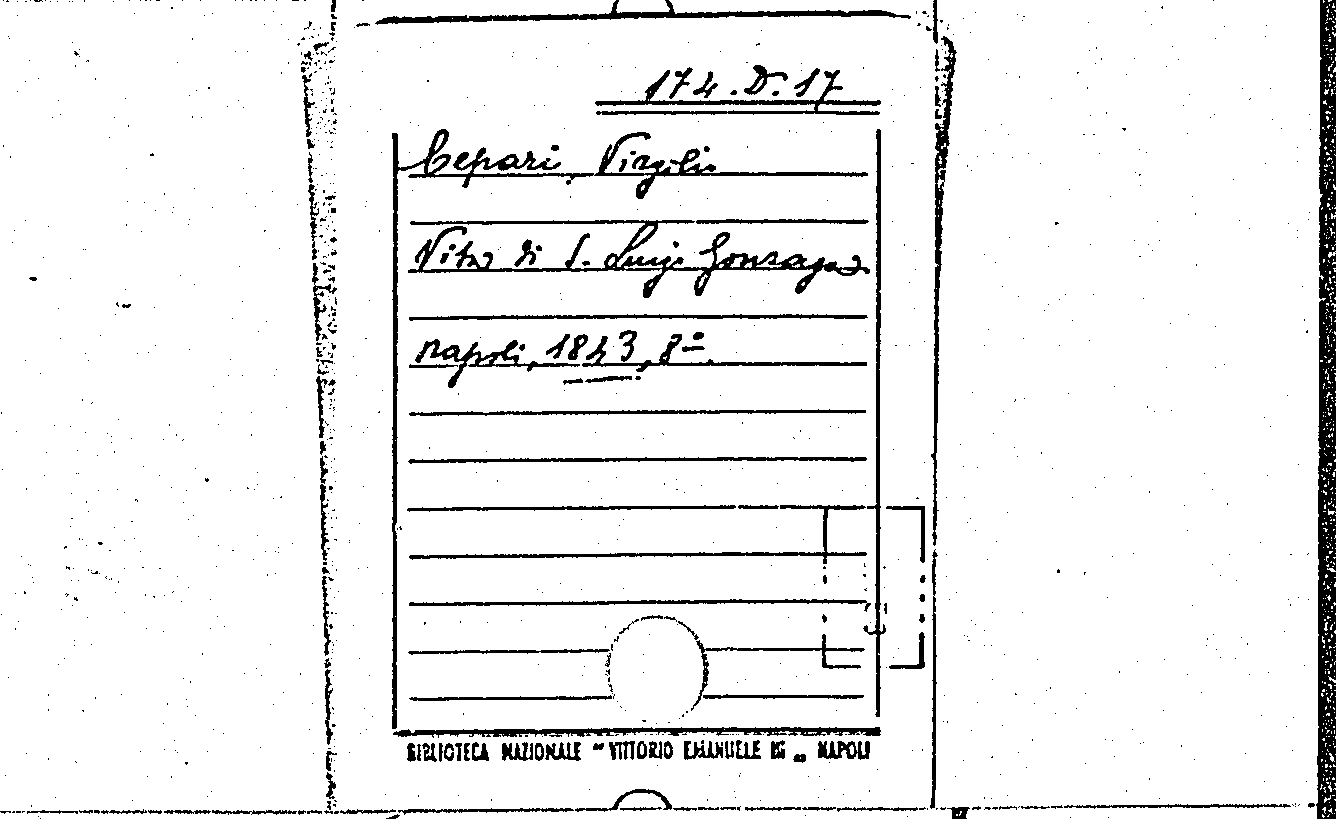 174.D.17
Cepari, Virgilio
Vita di S. Luigi Gonzaga.
Napoli, 1843, 8º.
BIBLIOTECA NAZIONALE "VITTORIO EMANUELE III„ NAPOLI